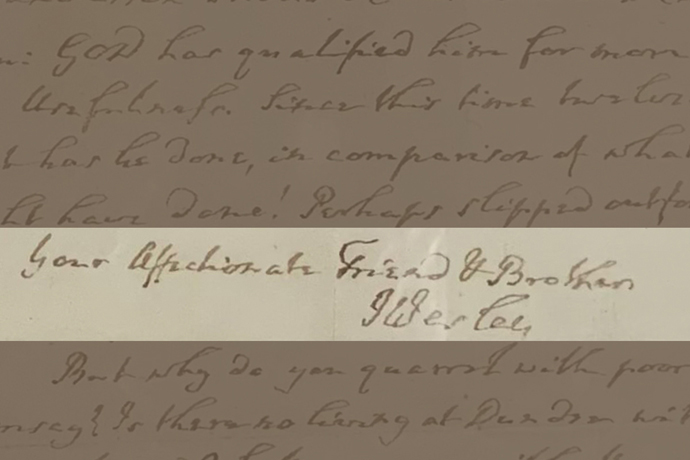 GOD has qualified him for more
Usefulness. Since this time twelve
has he done, in comparison of what
have done! Perhaps slipped
Your Affectionate Friend & Brother
JWesley
But why do you quarrel with poor
Is there no living at Dundee